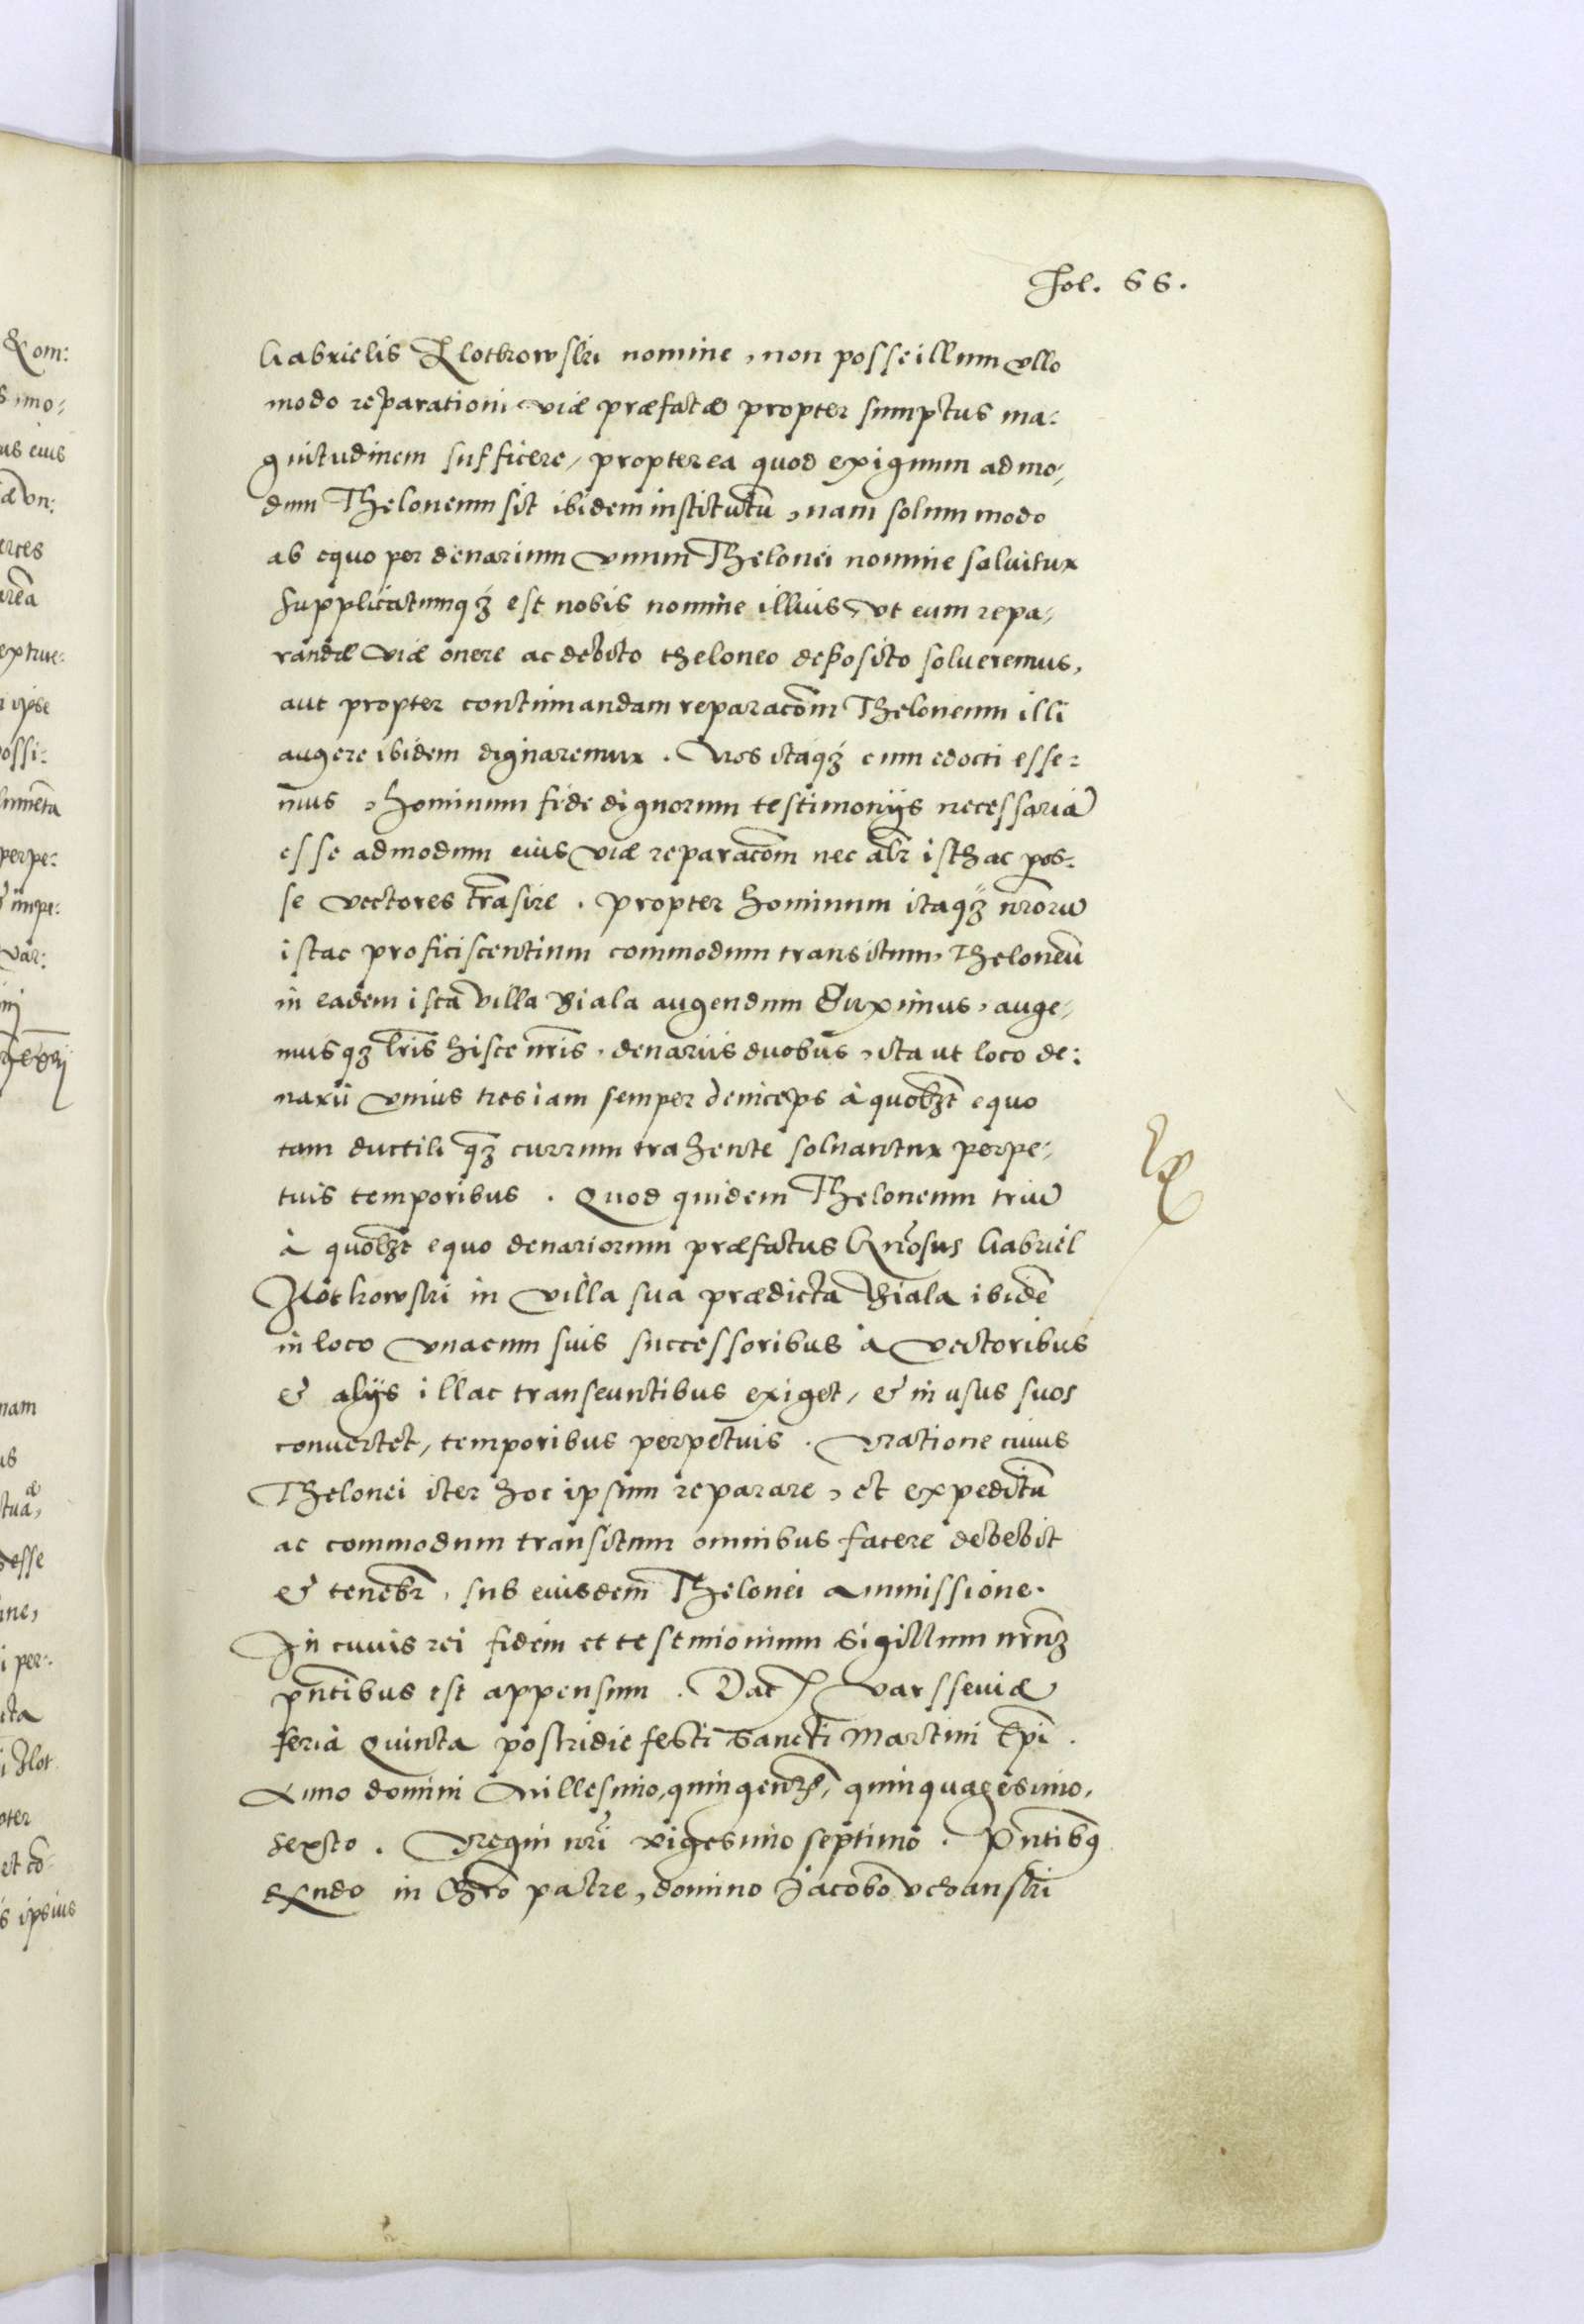 Fol. 66.
Gabrielis Zlothowski nomine, non posse illum vllo
modo reparationi viæ præfatæ propter sumptus ma:
gnitudinem sufficere, propterea quod exiguum admo,
dum Theloneum sit ibidem institutū, nam solummodo
ab equo per denarium vnum Thelonei nomine soluitur
supplicatumqꝫ est nobis nomine illius, vt eum repa,
randæ viæ onere ac debito theloneo deposito solueremus,
aut propter continuandam reparacōm Theloneum illi
augere ibidem dignaremur. Nos itaqꝫ cum edocti esse:
mus, hominum fide dignorum testimonijs necessariā
esse admodum eius viæ reparacōm nec alr̄ isthac pos:
se vectores trāsire. propter hominum itaqꝫ nrōrū
istac proficiscentium commodum transitum, Theloneū
in eadem ista villa Biala augendum duximus, auge,
musqꝫ lr̄is hisce nr̄is, denariis duobus, ita ut loco de:
narii vnius tres iam semper deinceps à quobꝫt equo
tam ductili qꝫ currum trahente soluantur perpe,
tuis temporibus. Quod quidem Theloneum triū
à quobꝫt equo denariorum præfatus Gnr̄osus Gabriel
Zlotkowski in villa sua prædicta Biala ibidē
in loco vnacum suis successoribus à vectoribus
& alijs illac transeuntibus exiget, & in usus suos
conuertet, temporibus perpetuis. Ratione cuius
Thelonei iter hoc ipsum reparare, et expeditū
ac commodum transitum omnibus facere debebit
& tenebr̄, sub eiusdem Thelonei ammissione.
In cuius rei fidem et testimonium Sigillum nrm̄
pn̄tibus est appensum. Dat Varsseuiæ
feria Quinta postridie festi Sancti Martini Ep̄i.
Anno domini Millesimo, quingen, quinquagesimo,
sexto. Regni nr̄i vigesimo septimo. Pn̄tibꝰ
Rxndo in Chrō patre, domino Jacobo Vchanski
&om:
eius
ipse
ossi:
perpe:
var:
nam
us
esse
i per:
cta
et cō
s ipsius